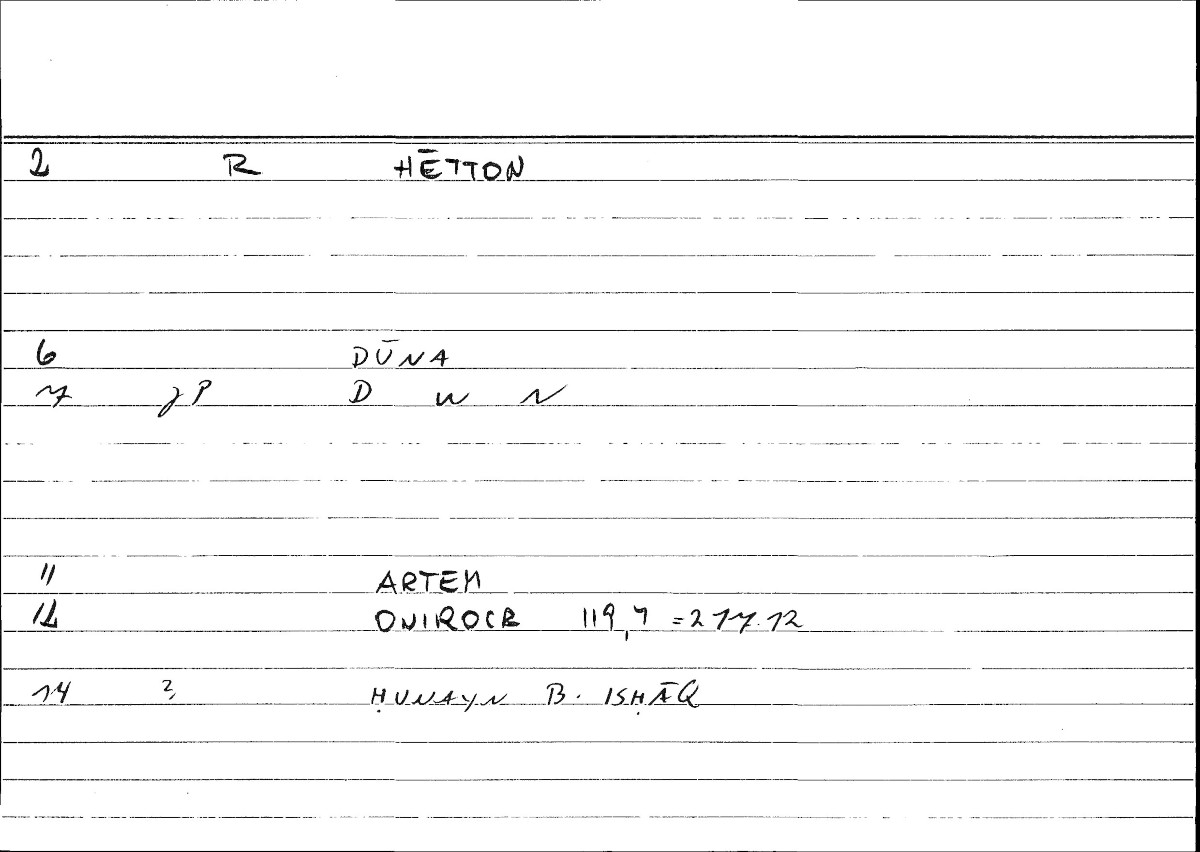 2 R HĒTTON
6 DŪNA
7 JP D W N
11 ARTEM
12 ONIROCR 119,7 = 217.12
14 2, ḤUNAYN B. ISḤĀQ